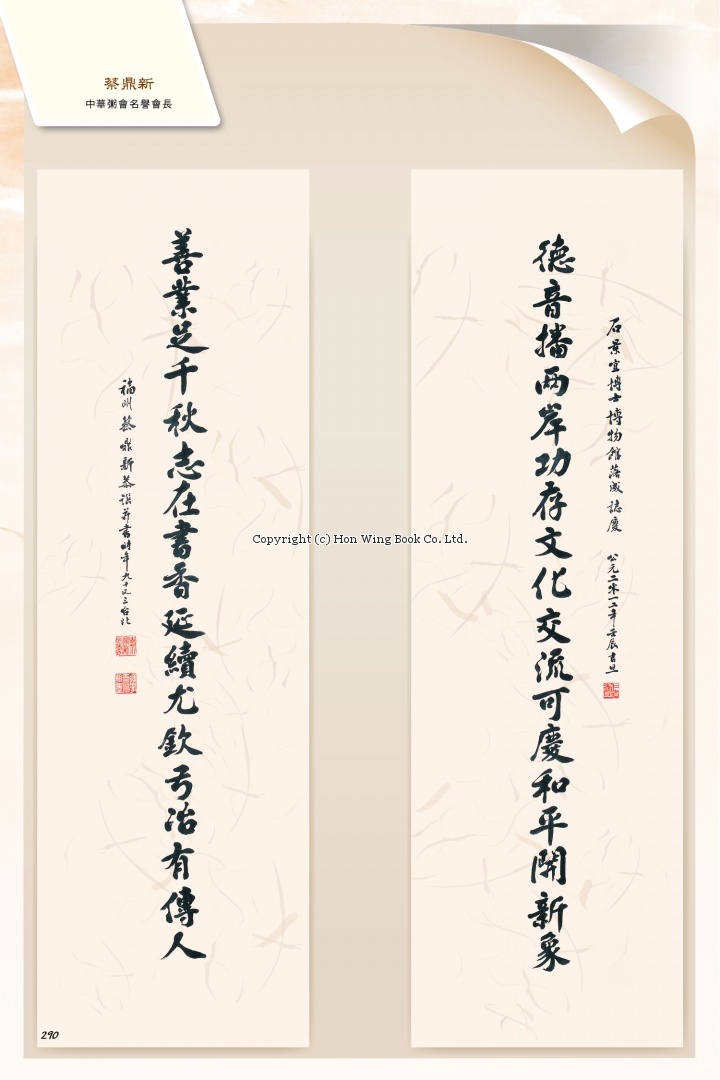 蔡鼎新
中華粥會名譽會長
石景宜博士博物館落成誌慶 公元二零一二年壬辰吉旦
德音播两岸功存文化交流可慶和平開新象
善業足千秋志在書香延續尤欽弓冶有傳人
福州蔡鼎新恭譔并書時年九十又三台北
Copyright (c) Hon Wing Book Co. Ltd.
290